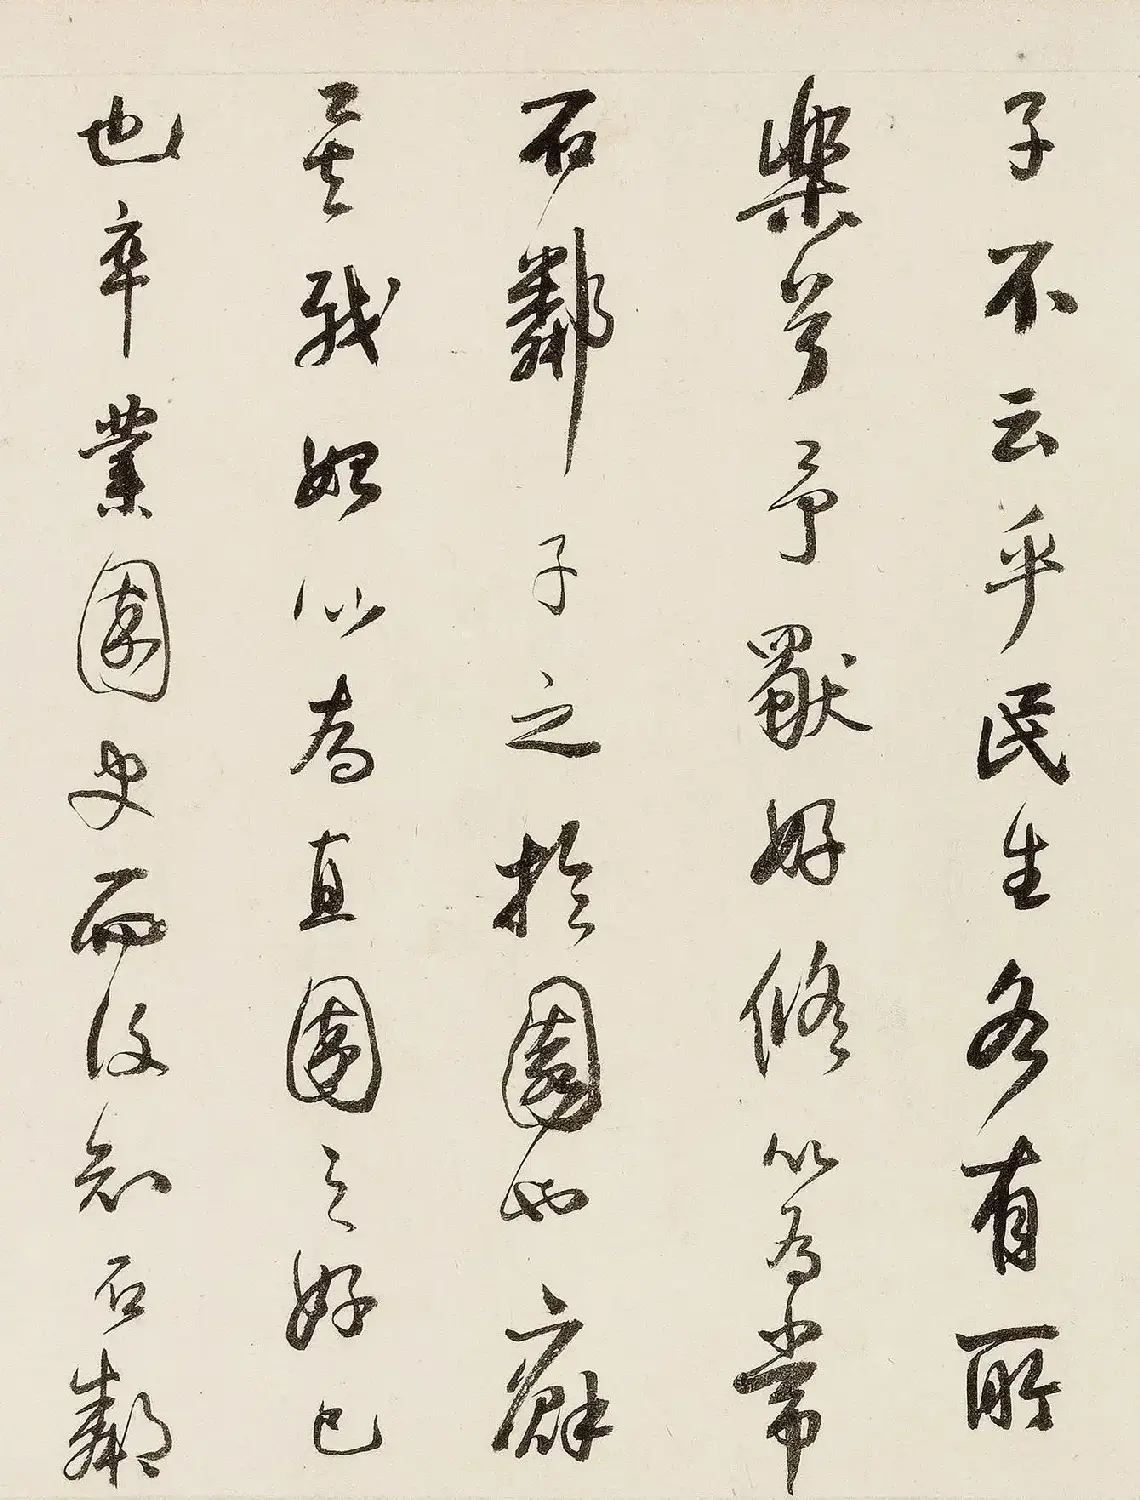 子不云乎民生各有所
樂兮予獸好修以為常
石鄰子之於園也癖
矣哉始以為直園之好已
也卒業園史而後知石鄰